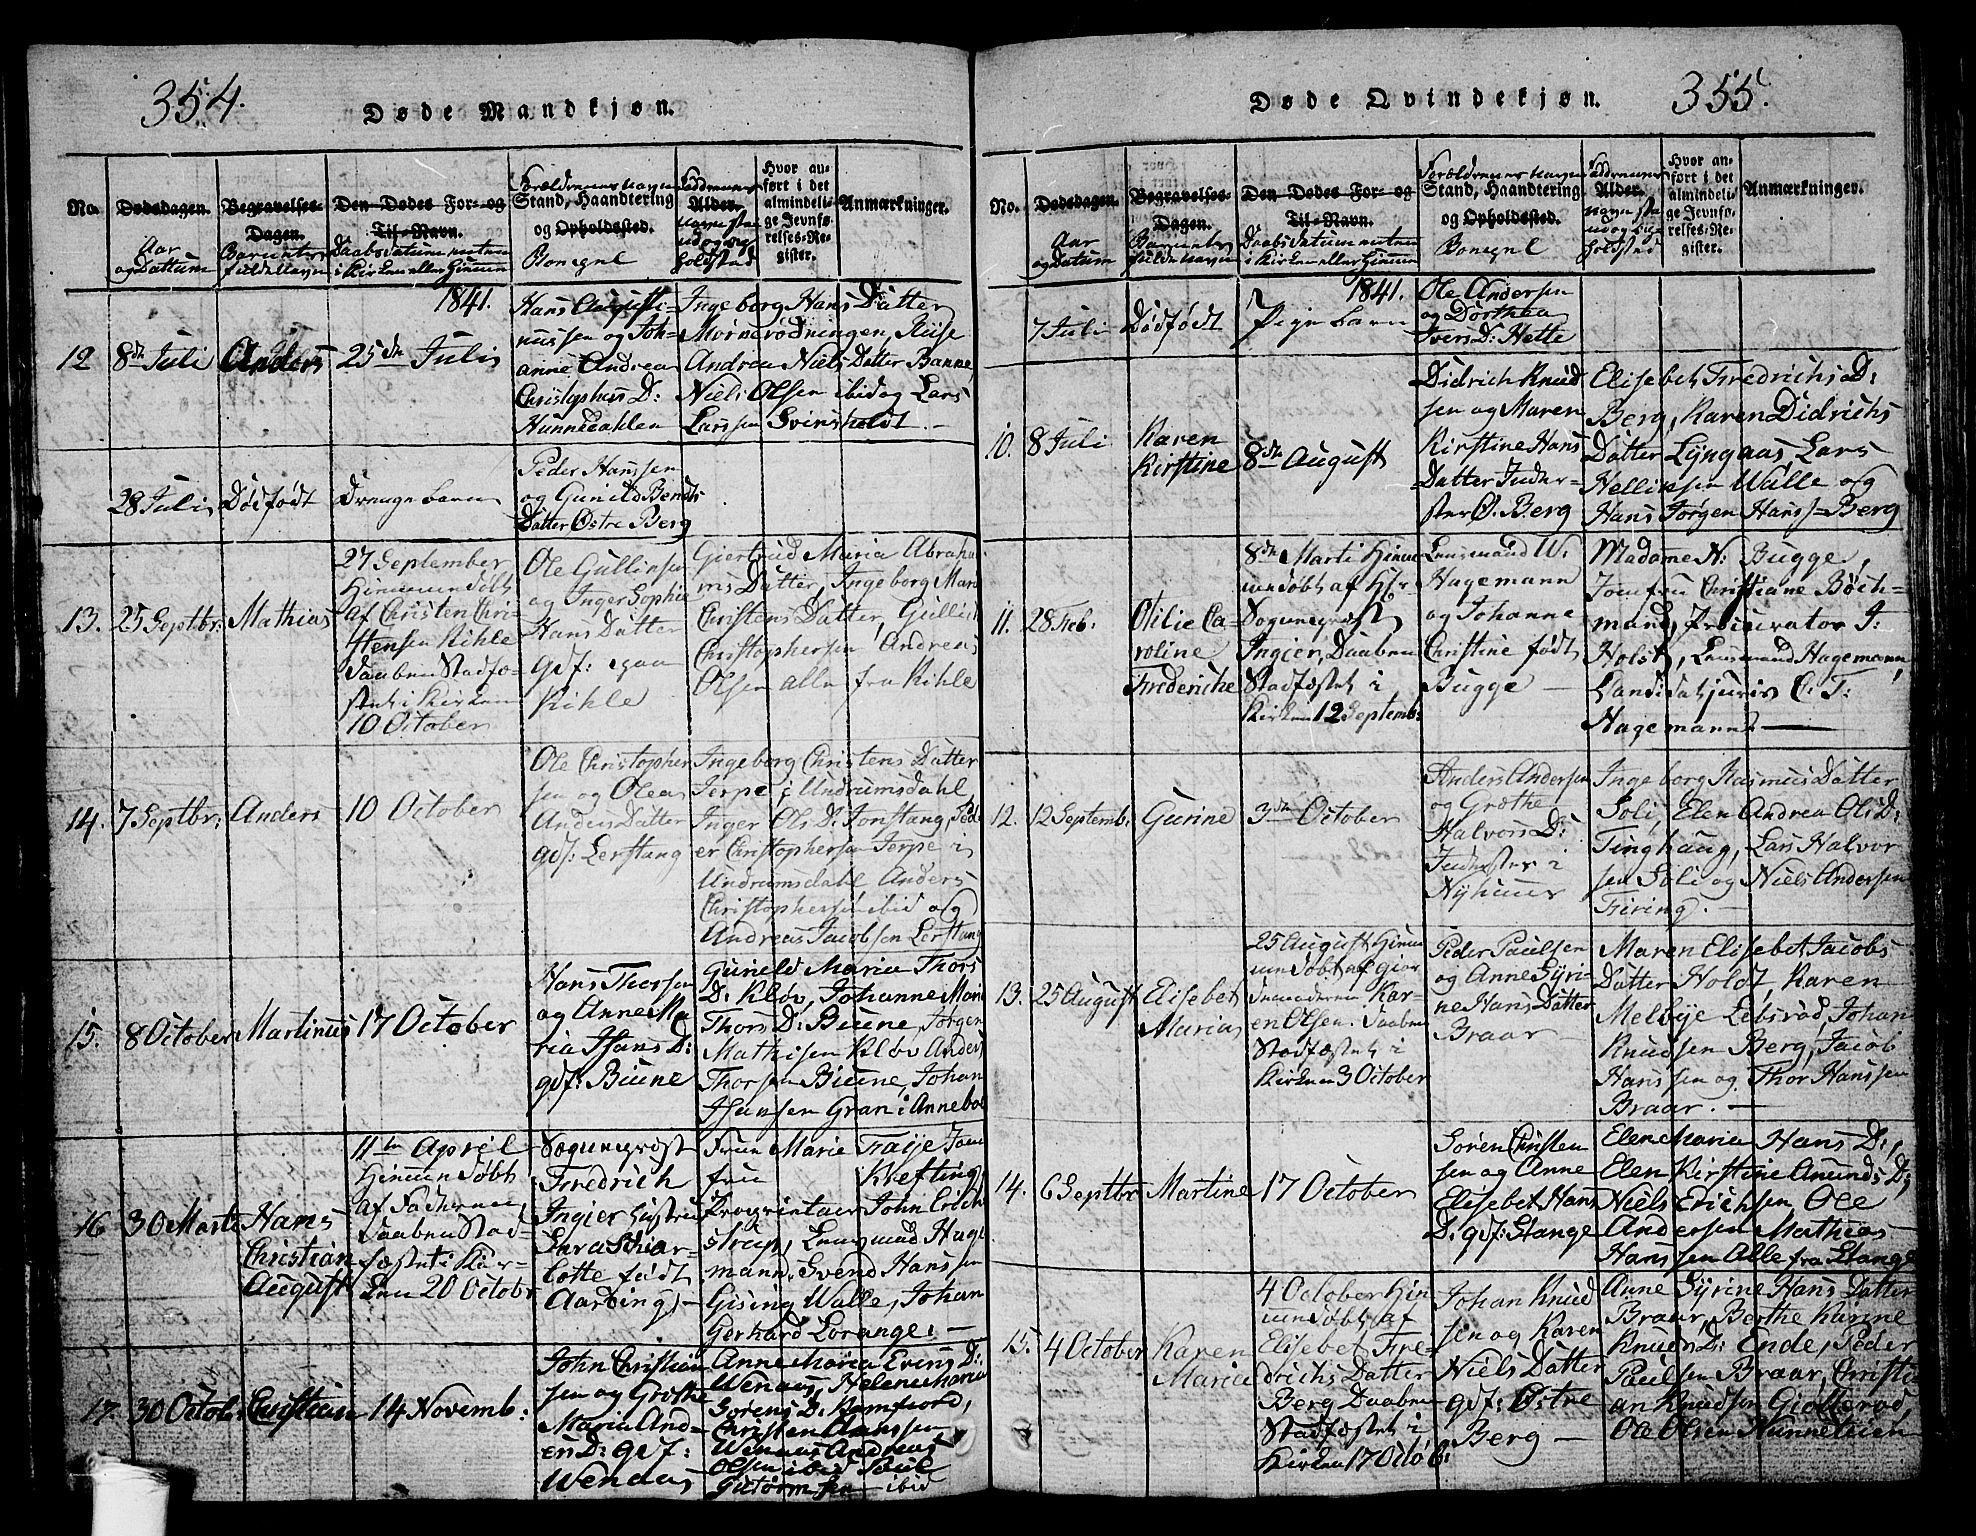 354.
Døde Mandkjøn.
No.
Dødsdagen.
Aar
og Dattum
Begravelses-
Dagen.
Barnets
fulde Navn
Den Dødes For- og
Til-Navn.
Daabsdatum enten
i Kirken eller Hiemme
Forældrenes Navn
Stand, Haandtering
og Opholdssted.
Bopegl
Faddernes
Alder.
Navn, Sta
nd og Op
holdsted
Hvor an-
ført i det
almindeli-
ge Jevnfø-
relses-Re-
gister.
Anmærkninger.
1841.
12
8de Juli
Anders
25de Julis
Hans Augusti-
nussen og Joh-
anne Andrea
Christophers D:
Hunnedahlen
Ingeborg Hans Datter
Mørnerødningen, Kise
Andrea Niels Datter Banne
Niels Olsen ibid og Lars
Larssen Svinsholdt.
28 Juli
Dødfødt
Drenge barn
Peder Hanssen
og Gunild Bendts
Datter Østre Berg
13.
25 Septbr:
Mathias
27 September
Hiemmedøbt
af Christen Chri-
stensen Kihle
Daaben Stadfæ-
stet i Kirken
10 October
Ole Gullinsen
og Inger Sophie
Hans Datter
gdf: egaa
Kihle
Giertrud Maria Abraha
ms Datter, Ingeborg Mari
Christens Datter, Gullik
Christophersen Andreas
Olsen alle fra Kihle
14.
7 Septbr:
Anders
10 October
Ole Christopher
sen og Olea
Anders Datter
gdf: Lerstang
Ingeborg Christens Datter
Jerpe i Undrumsdahl,
Inger Ols D: Jonstang, Ped
er Christophersen Jerpe i
Undrumsdahl Anders
Christophersen ibid og
Andreas Jacobsen Lerstang
15.
8 October
Martinus
17 October
Hans Thorsen
og Anne Ma
ria Hans D:
gdf: Biune
Guneld Maria Thors
D: Kløv, Johanne Mari
Thors D: Biune, Jørgen
Mathisen Kløv Anders
Thorsen Biune, Johan
Hansen Gran i Annebo
16
30 Marts
Hans
Christian
August
11te Aprel
Hiemmedøbt
af Faderen,
Daaben Stad-
fæstet i Kir-
ken 20 Octobr
Sogneprest
Fredrich
Ingier hustru
Sara Schar-
lotte født
Aarbing
Frue Marie Fraije Jom
frue Kiefting,
Proprietair John Erich
strup, Lensmand Hage
mann, Svend Hanssen
Gising Walle, Johan
Gerhard Lorange.
17.
30 Octob
Christian
14 Novemb:
John Christian
sen og Grøthe
Maria And-
ers D: gdf:
Wenaas
Anne Maria Evens D:
Wenaas, Helene Maria
Sørens D: Kamfiord,
Christen Hanssen
Wenaas Andreas
Olsen ibid Poul
Gutormsen ibid
355.
Døde Qvindekjøn.
No.
Dødsdagen.
Aar
og Datum
Begravelses-
Dagen.
Barnets
fulde Navn
Den Dødes For- og
Til-Navn.
Daabsdatum enten
i Kirken eller Hiemme
Forældrenes Navn
Stand, Haandtering
og Opholdssted.
Bopegl
Faddernes
Alder.
Navn, Sta
nd og Op
holdsted
Hvor an-
ført i det
almindeli-
ge Jevnfø-
relses-Re-
gister.
Anmærkninger.
1841.
7 Juli
Dødfødt
Pige barn
Ole Andersen
og Dorthea
Ivers D: Hette
10.
8 Juli
Karen
Kirstine
8de August
Didrich Knud
sen og Maren
Kirstine Hans
Datter Inder-
ster Ø. Berg
Elisebet Fredrichs D:
Berg, Karen Didrichs
Datter Lyngaas Lars
Hellinsen Walle og
Hans Jørgen Hanss= Berg
11.
28 Feb:
Otilie Ca-
roline
Frederiche
8de Marti Hiem
medøbt af Hr
Sogneprest
Ingier, Daaben
Stadfæstet i
Kirken 12. Septemb:
Lensmand W.
Hagemann
og Johanne
Christine født
Bugge
Madame N: Bugge,
Jomfru Christiane Böch-
mand, Procurator F:
Holst, Lensmand Hagemann,
Candidat juris C. F:
Hagemann
12.
12 Septemb:
Gurine
3de October
Anders Andersen
og Grøthe
Halvors D:
Inderster i
Nyhuus
Ingeborg Rasmus Datter
Soli, Elen Andrea Ols D:
Tinghaug, Lars Halvor
sen Soli og Niels Andersen
Firing.
13.
25 August
Elisebet
Maria
25 August Hiem
medøbt af Gior
demoderen Kar-
en Olsen. Daaben
Stadfæstet i
Kirken 3 October
Peder Paulsen
og Anne Syri-
ne Hans Datter
Braar
Maren Elisebet Jacobs
Datter Holdt Karen
Melbye Lebsrød, Johan
Knudsen Berg, Jacob
Hanssen og Thor Hanssen
Braar.
14.
6 Septbr
Martine
17 October
Sören Christen
sen og Anne
Elisebet Hans
D: gdf: Stange
Elen Maria Hans D:
Elen Kirstine Amunds D:
Niels Erichsen, Ole
Andersen Mathias
Hanssen Alle fra Stange
15.
4 October
Karen
Maria
4 October Hiem
medøbt af
Elisebet Fre-
drichs Datter
Berg Daaben
Stadfæstet i
Kirken 17 Octob:
Johan Knud
sen og Karen
Niels Datter
gdf: Østre
Berg
Anne Syrine Hans Datter
Braar, Berthe Karine
Knuds D: Ende, Peder
Paulsen Braar, Christi
an Knudsen Giølterød,
Ole Olsen Hunnetuen